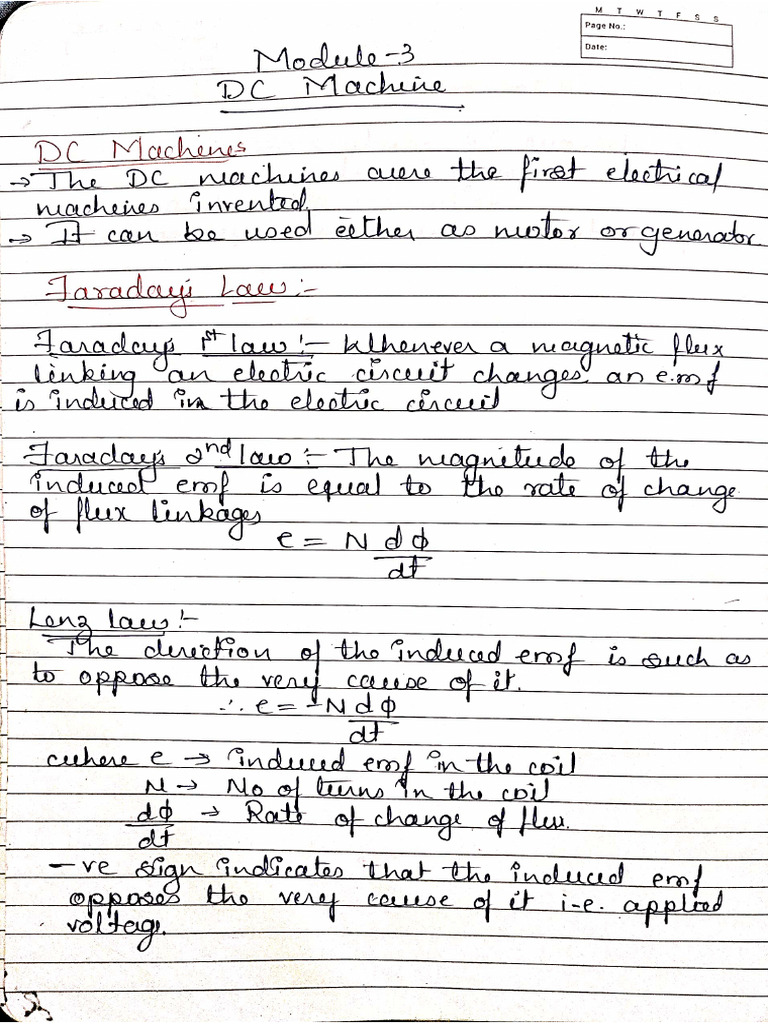 M T W T F S S
Page No.:
Date:
Module-3
DC Machine
DC Machines
→ The DC machines were the first electrical
machines invented
→ It can be used either as motor or generator
Faraday's Law:-
Faradays 1st law:- Whenever a magnetic flux
linking an electric circuit changes, an e.m.f
is induced in the electric circuit
Faradays 2nd law:- The magnitude of the
induced emf is equal to the rate of change
of flux linkages
e = N dϕ
dt
Lenz law:-
The direction of the induced emf is such as
to oppose the very cause of it.
∴ e = -N dϕ
dt
where e → induced emf in the coil
N → No of turns in the coil
dϕ → Rate of change of flux.
dt
-ve sign indicates that the induced emf
opposes the very cause of it i.e. applied
voltage.